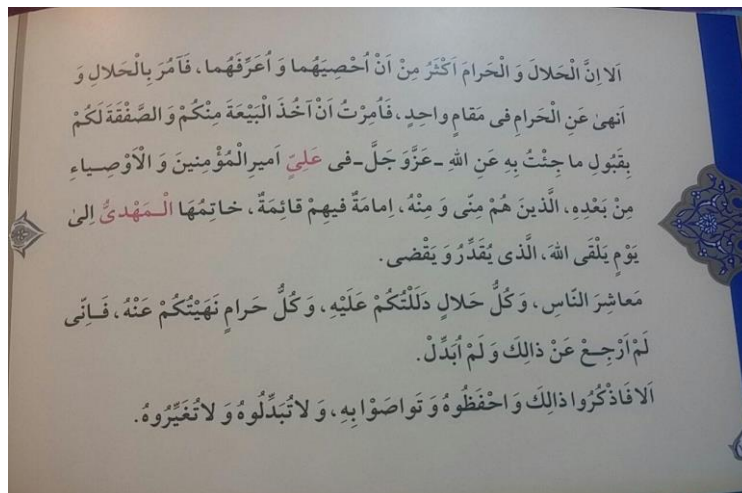 اَلا اِنَّ الْحَلالَ وَ الْحَرامَ اَكْثَرُ مِنْ اَنْ اُحْصِیَهُما وَ اُعَرِّفَهُما، فَآمُرَ بِالْحَلالِ وَ
اَنهیٰ عَنِ الْحَرامِ فی مَقامٍ واحِدٍ، فَاُمِرْتُ اَنْ آخُذَ الْبَیْعَةَ مِنْكُمْ وَ الصَّفْقَةَ لَكُمْ
بِقَبُولِ ما جِئْتُ بِهِ عَنِ اللهِ ـ عَزَّوَ جَلَّ ـ فی عَلِیٍّ اَمیرِالْمُؤْمِنینَ وَ الْاَوْصِـیاءِ
مِنْ بَعْدِهِ، الَّذینَ هُمْ مِنّی وَ مِنْهُ، اِمامَةٌ فیهِمْ قائِمَةٌ، خاتِمُهَا الْـمَهْدیُّ اِلیٰ
یَوْمٍ یَلْقَی اللهَ، الَّذی یُقَدِّرُ وَ یَقْضی.
مَعاشِرَ النّاسِ، وَ كُلُّ حَلالٍ دَلَلْتُكُمْ عَلَیْهِ، وَ كُلُّ حَرامٍ نَهَیْتُكُمْ عَنْهُ، فَـاِنّی
لَمْ اَرْجِـعْ عَنْ ذالِكَ وَ لَمْ اُبَدِّلْ.
اَلا فَاذْكُرُوا ذالِكَ وَ احْفَظُوهُ وَ تَواصَوْا بِهِ، وَ لاتُبَدِّلُوهُ وَ لاتُغَیِّرُوهُ.